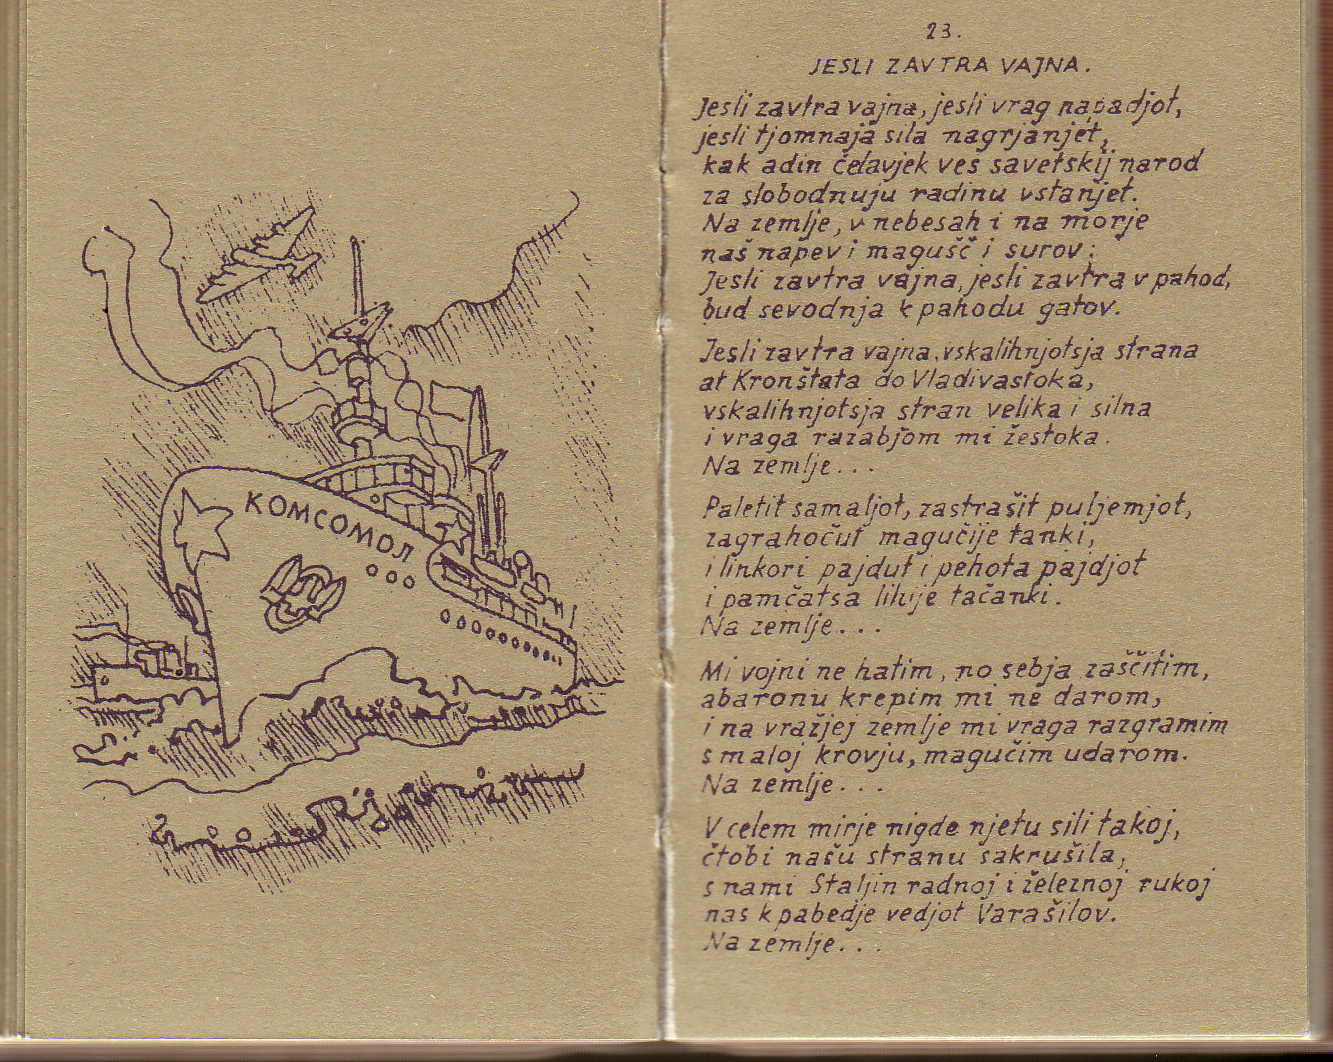 КОМСОМОЛ
23.
JESLI ZAVTRA VAJNA.
Jesli zavtra vajna, jesli vrag napadjot,
jesli tjomnaja sila nagrjanjet,
kak adin čelavjek ves savetskij narod
za slobodnuju radinu vstanjet.
Na zemlje, v nebesah i na morje
naš napev i magušč i surov:
Jesli zavtra vajna, jesli zavtra v pahod,
bud sevodnja k pahodu gatov.
Jesli zavtra vajna, vskalihnjotsja strana
at Kronštata do Vladivastoka,
vskalihnjotsja stran velika i silna
i vraga razabjom mi žestoka.
Na zemlje...
Paletit samaljot, zastrašit puljemjot,
zagrahočut magučije tanki,
i linkori pajdut i pehota pajdjot
i pamčatsa lihije tačanki.
Na zemlje...
Mi vojni ne hatim, no sebja zaščitim,
abaronu krepim mi ne darom,
i na vražjej zemlje mi vraga razgramim
s maloj krovju, magučim udarom.
Na zemlje...
V celem mirje nigde njetu sili takoj,
čtobi našu stranu sakrušila,
s nami Staljin radnoj i železnoj rukoj
nas k pabedje vedjot Varašilov.
Na zemlje...